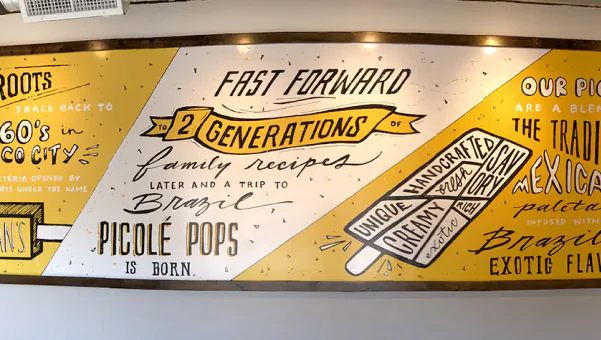 ROOTS
TRACE BACK TO
60's in
CO CITY
ETERIA OPENED BY
NTS UNDER THE NAME
AN'S
FAST FORWARD
TO 2 GENERATIONS OF
family recipes
LATER AND A TRIP TO
Brazil
PICOLÉ POPS
IS BORN.
UNIQUE
HANDCRAFTED
SAVORY
fresh
CREAMY
RICH
exotic
OUR PIC
ARE A BLEN
THE TRADI
MEXICA
paleta
INFUSED WITH
Brazil
EXOTIC FLAV